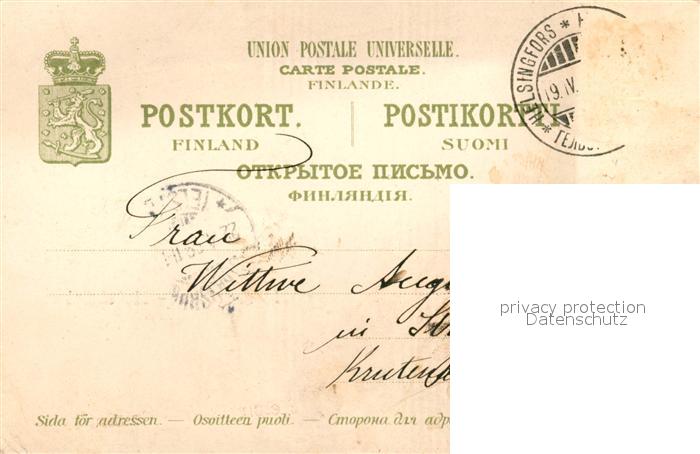 UNION POSTALE UNIVERSELLE.
CARTE POSTALE.
FINLANDE.
POSTKORT. POSTIKORTTI.
FINLAND SUOMI
ОТКРЫТОЕ ПИСЬМО.
ФИНЛЯНДІЯ.
HELSINGFORS
19.IV.
Frau
Wittwe Aug
in
privacy protection
Datenschutz
Sida för adressen. — Osoitteen puoli. — Сторона для адр